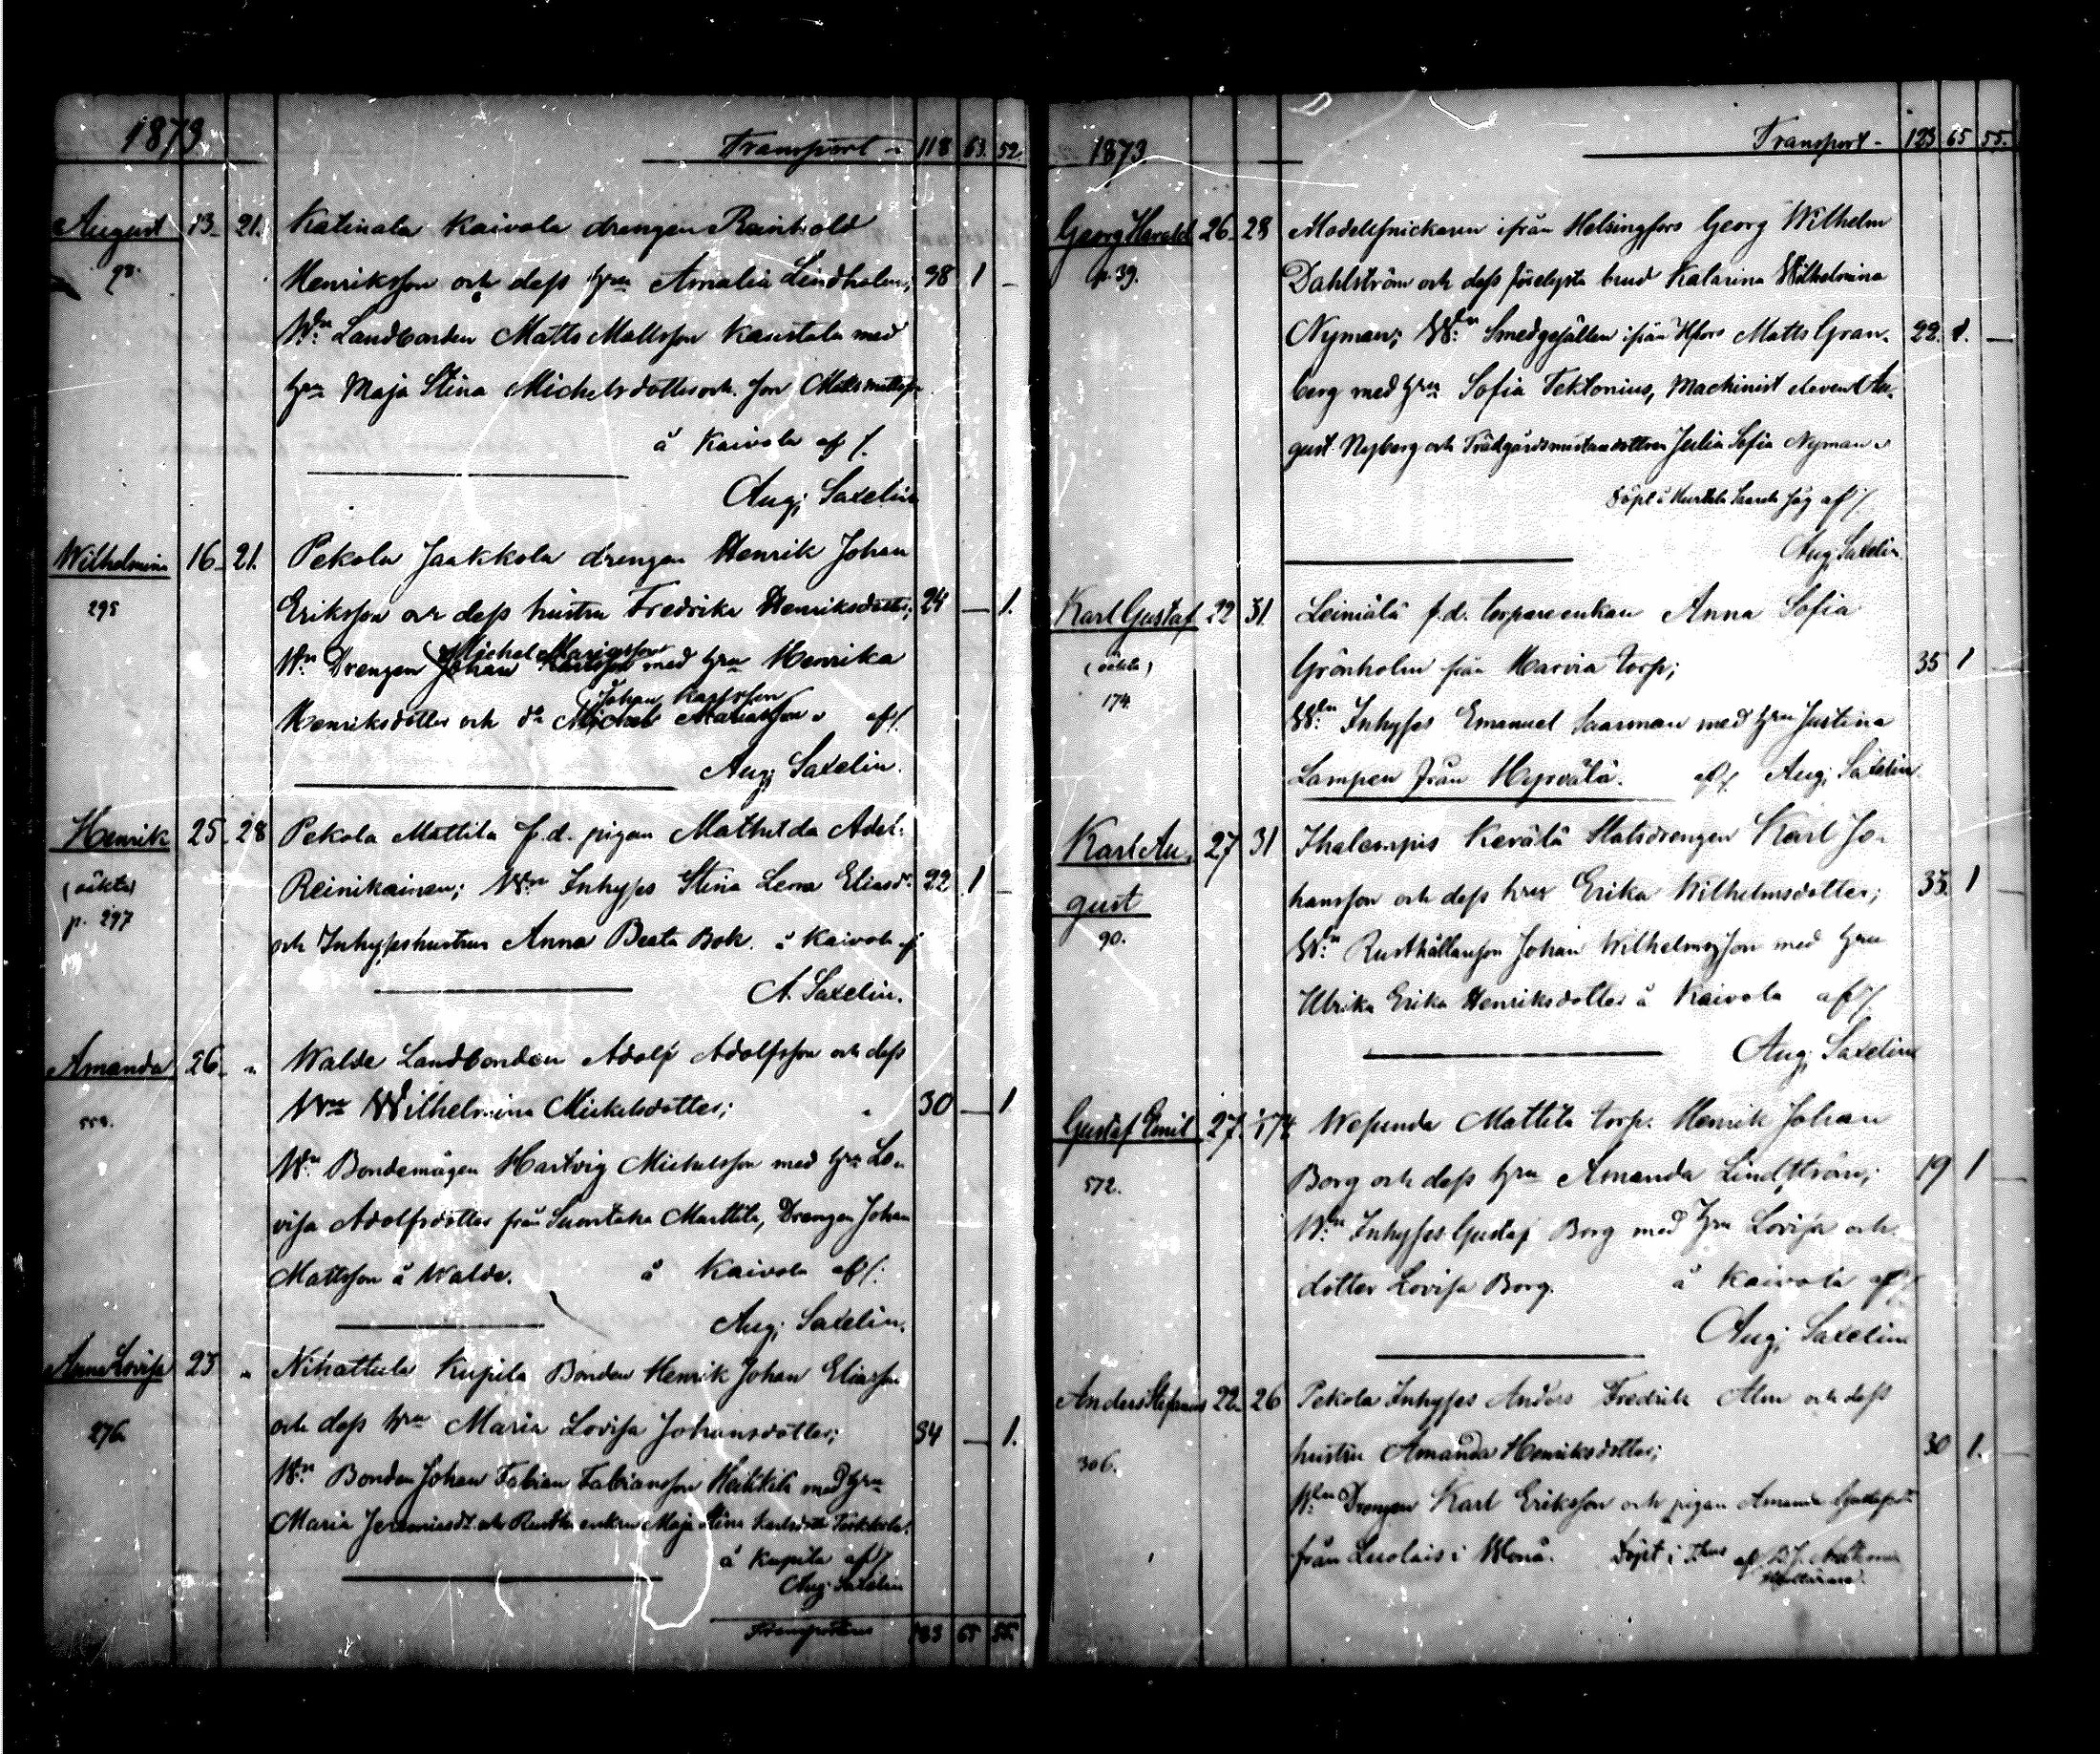 1873
Transport - 118 63. 52.
August 13. 21. Katinala Kaivola drengen Reinhold
98. Henriksson och dess hru Amalia Lindholm; 38 1 -
Wn Landbonden Matts Mattsson Kasistala med
hru Maja Stina Michelsdotter och
å Kaivola af /.
Aug; Saxelin
Wilhelmina 16. 21. Pekola Jaakkola drengen Henrik Johan
295 Eriksson och dess hustru Fredrika Henriksdotter; 24 - 1.
Michel Mariasson
Wn Drengen Johan Karlsson med hru Henrika
Johan Karlsson
Henriksdotter och dn Michel Mariasson af/.
Aug; Saxelin.
Henrik 25. 28 Pekola Mattila f.d. pigan Mathilda Adel.
(oäkta) Reinikainen; Wn Inhyses Stina Lena Eliasdr 22 1 -
p. 297 och Inhyseshustrun Anna Beata Bok. å Kaivola af
A. Saxelin.
Amanda 26. " Walde Landbonden Adolf Adolfsson och dess
Hru Wilhelmina Mickelsdotter; 30 - 1
Wn Bondemågen Hartvig Michelsson med hru Lo-
visa Adolfsdotter från Suontaka Marttila, Drengen Johan
Mattsson å Walde. å Kaivola af/.
Aug; Saxelin.
Anna Lovisa 23 " Nihattula Kupila Bonden Henrik Johan Eliasson
276. och dess hru Maria Lovisa Johansdotter; 34 - 1.
Wn Bonden Johan Fabian Fabiansson Heikkilä med hru
Maria Jeremiasdr och Rusth. enkan Maja Stina Karlsdotter
å Kupila af/.
Aug. Saxelin
Transporteras 123 65 55.
1873
Transport - 123 65 55.
Georg Harald 26. 28 Modellsnickaren ifrån Helsingfors Georg Wilhelm
p. 39. Dahlström och dess förelysta brud Katarina Wilhelmina
Nyman; Wn Smedgesällen ifrån Hfors Matts Gran- 22. 1. -
berg med hru Sofia Tektonius, Machinist eleven Au-
gust Nyberg och Trädgårdsmästaredottren Julia Sofia Nyman.
af /.
Aug. Saxelin.
Karl Gustaf 22 31. Leiniälä f.d. torpareenkan Anna Sofia
(oäkta) Grönholm från Harvia torp; 35 1 -
174. Wn Inhyses Emanuel Saarman med hru Justina
Lampen från Hyrvälä. af/. Aug; Saxelin.
Karl Au- 27 31 Ihalempis Kevälä Statsdrengen Karl Jo-
gust hansson och dess hru Erika Wilhelmsdotter; 33. 1 -
90. Wn Rusthållarsson Johan Wilhelmsson med hru
Ulrika Erika Henriksdotter å Kaivola af/.
Aug; Saxelin
Gustaf Emil 27. 1/74 Wesunda Mattila torp. Henrik Johan
572. Borg och dess hru Amanda Lindström; 19 1 -
Wn Inhyses Gustaf Borg med hru Lovisa och
dotter Lovisa Borg. å Kaivola af/.
Aug; Saxelin
Anders Stefanus 22. 26 Pekola Inhyses Anders Fredrik Alm och dess
306. hustru Amanda Henriksdotter; 30 1. -
Wn Drengen Karl Eriksson och pigan Amanda
från Luolais i Wånå. Döpt i af